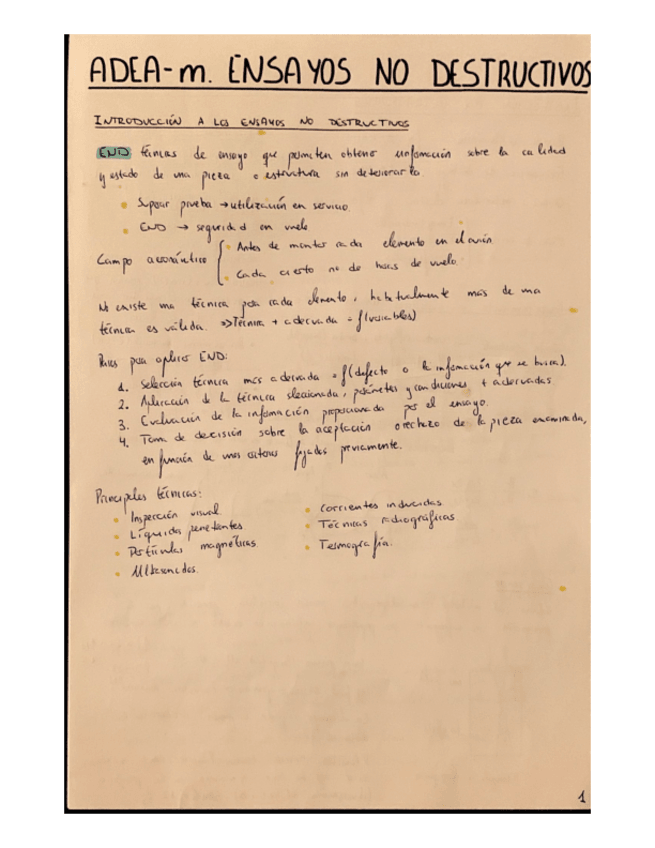 ADEA-m. ENSAYOS NO DESTRUCTIVOS
INTRODUCCIÓN A LOS ENSAYOS NO DESTRUCTIVOS
END técnicas de ensayo que permiten obtener información sobre la calidad
y estado de una pieza o estructura sin deteriorarla.
Superar prueba → utilización en servicio.
END → seguridad en vuelo
Campo aeronáutico
Antes de montar cada elemento en el avión.
Cada cierto no de horas de vuelo.
No existe una técnica para cada elemento, habitualmente más de una
técnica es válida. => Técnica + adecuada = f(variables)
para aplicar END:
1. Selección técnica más adecuada = f(defecto o la información que se busca).
2. Aplicación de la técnica seleccionada, parámetros y condiciones + adecuadas.
3. Evaluación de la información proporcionada por el ensayo.
4. Toma de decisión sobre la aceptación o rechazo de la pieza examinada,
en función de unos criterios fijados previamente.
Principales técnicas:
Inspección visual.
Líquidos penetrantes
Partículas magnéticas
Ultrasonidos.
Corrientes inducidas
Técnicas radiográficas
Termografía.
1